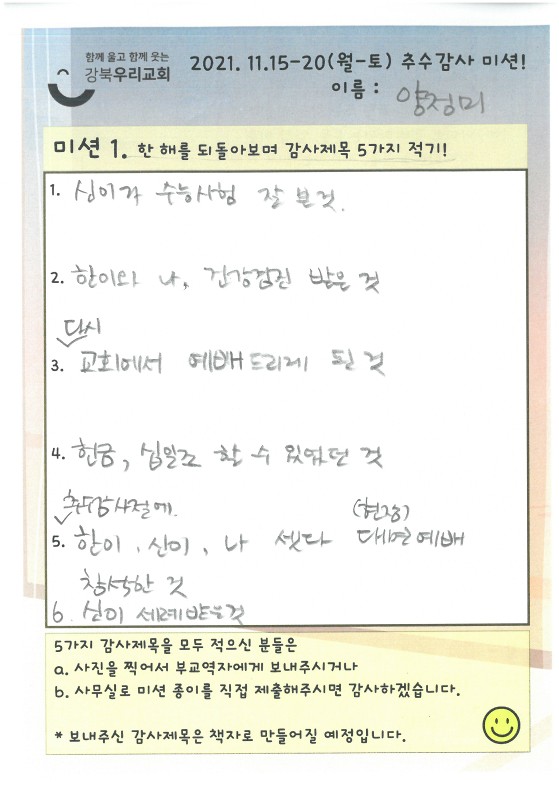 함께 울고 함께 웃는
강북우리교회
2021. 11.15-20(월-토) 추수감사 미션!
이름 : 양정미
미션 1. 한 해를 되돌아보며 감사제목 5가지 적기!
1. 신이가 수능시험 잘 본 것.
2. 한이와 나, 건강검진 받은 것
다시
3. 교회에서 예배드리게 된 것
4. 헌금, 십일조 할 수 있었던 것
추수감사절에.
(현장)
5. 한이, 신이, 나 셋다 대면예배
참석한 것
6. 신이 세례받은것
5가지 감사제목을 모두 적으신 분들은
a. 사진을 찍어서 부교역자에게 보내주시거나
b. 사무실로 미션 종이를 직접 제출해주시면 감사하겠습니다.
* 보내주신 감사제목은 책자로 만들어질 예정입니다.